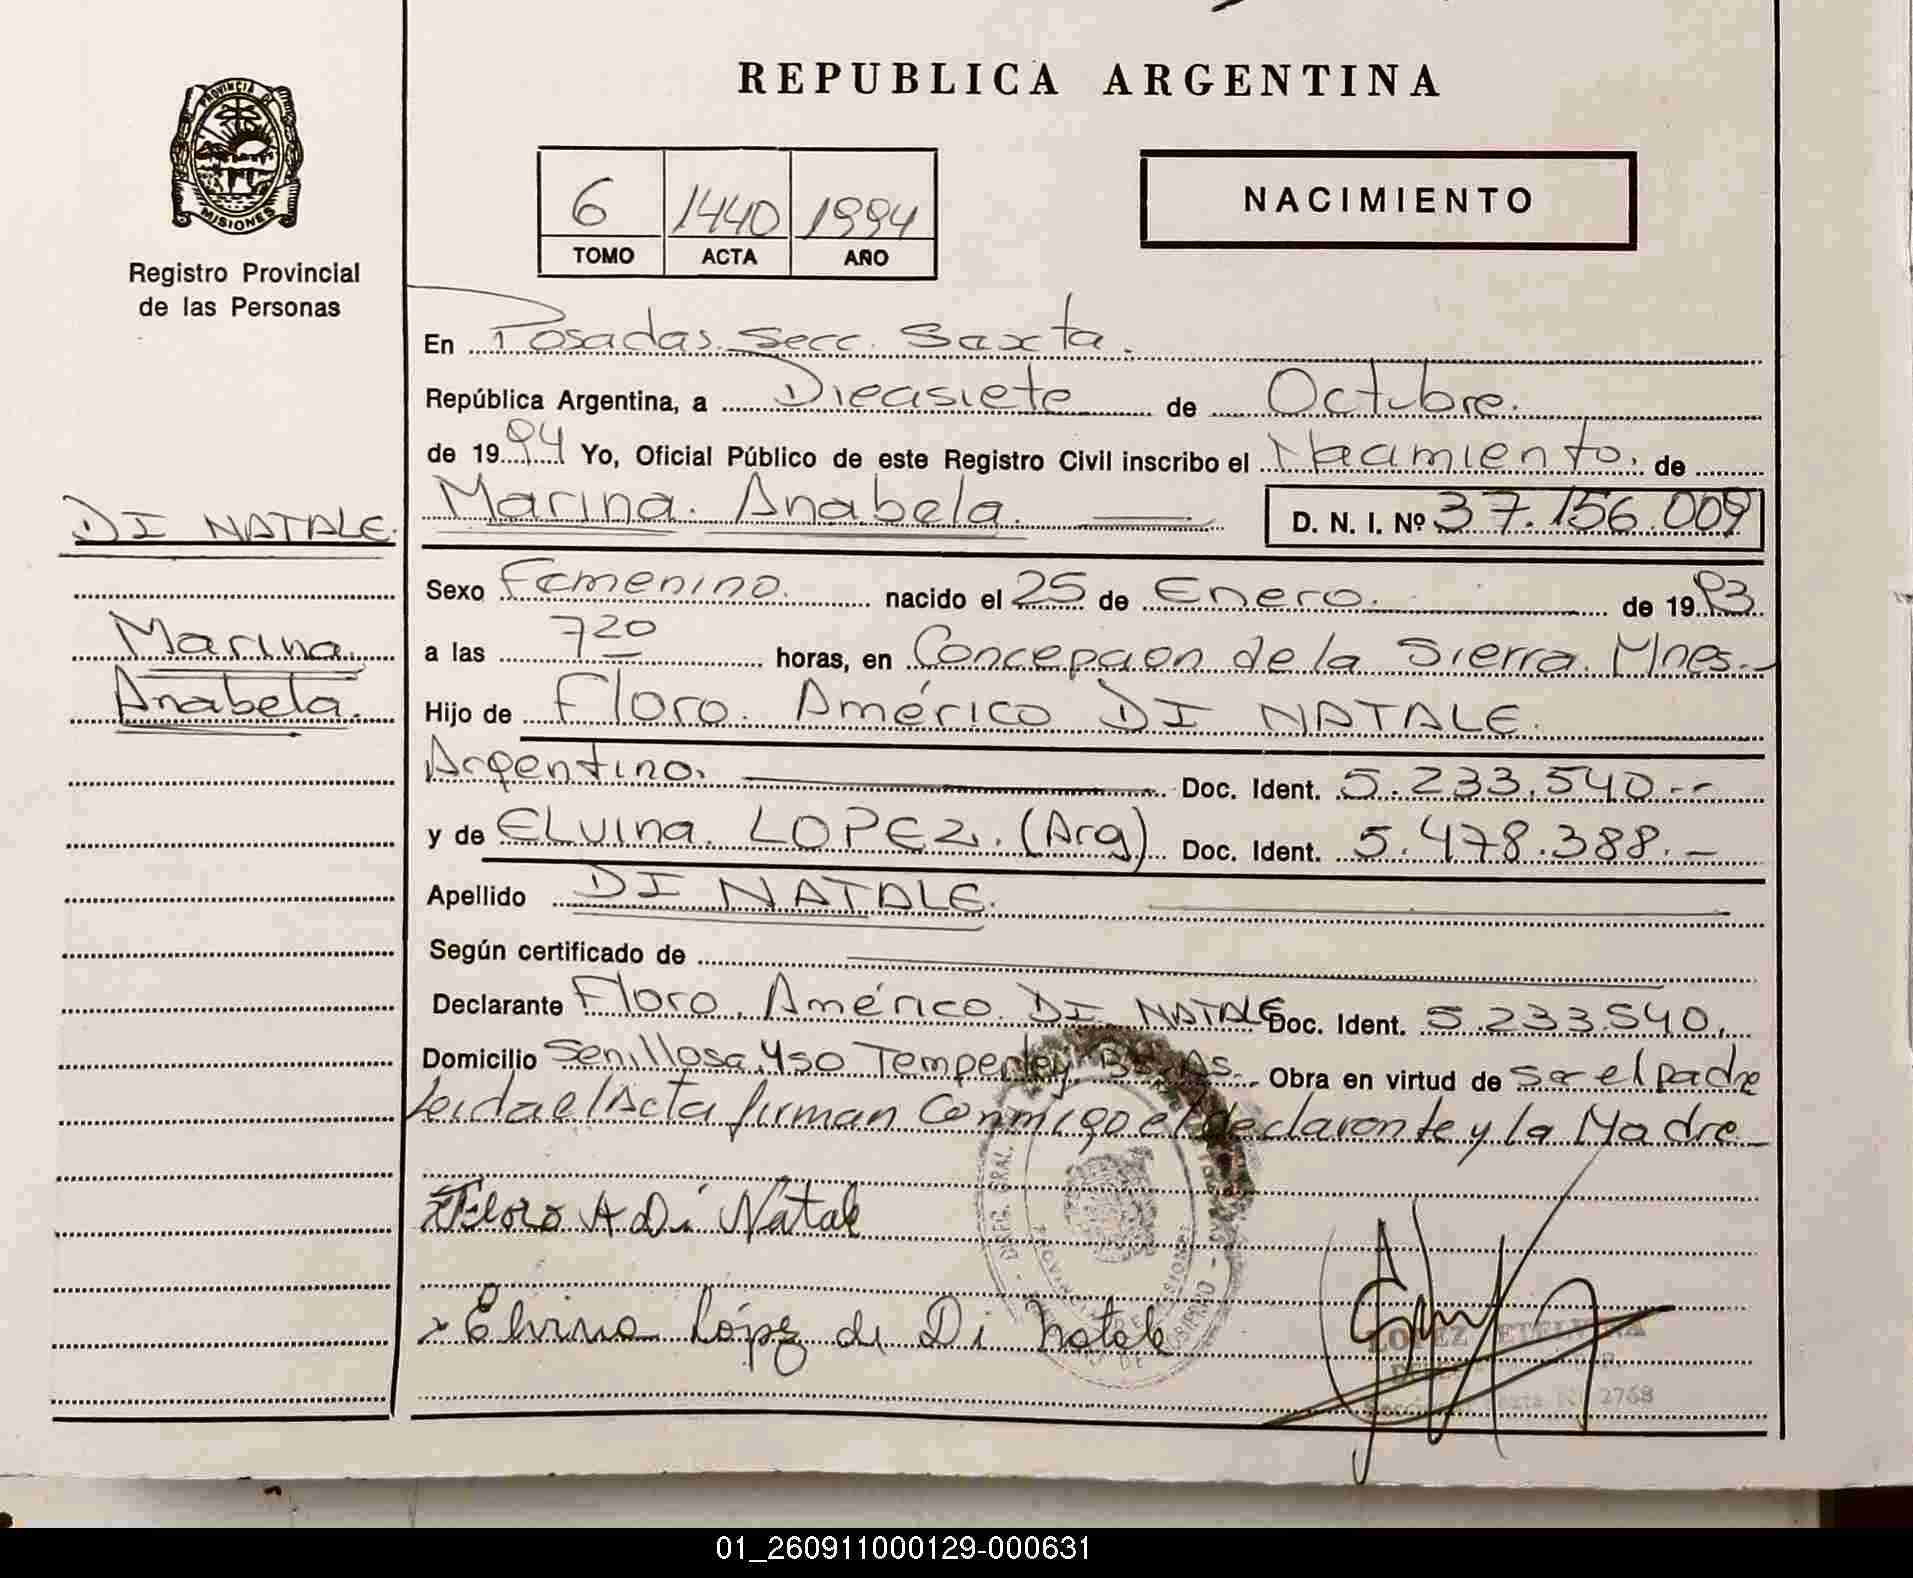 REPUBLICA ARGENTINA
PROVINCIA DE
MISIONES
Registro Provincial
de las Personas
6 1440 1994
TOMO ACTA AÑO
NACIMIENTO
En Posadas. Secc. Saxta.
República Argentina, a Diecisiete de Octubre.
de 1994 Yo, Oficial Público de este Registro Civil inscribo el Nacimiento. de
DI NATALE.
Marina. Anabela. D. N. I. Nº 37.156.009
Sexo Femenino. nacido el 25 de Enero. de 1993
Marina.
Anabela.
a las 7 20 horas, en Concepcion de la Sierra. Mnes.
Hijo de Floro. Américo DI NATALE.
Argentino. Doc. Ident. 5.233.540.--
y de ELVINA. LOPEZ. (Arg) Doc. Ident. 5.478.388.-
Apellido DI NATALE.
Según certificado de
Declarante Floro. Américo. DI NATALE Doc. Ident. 5.233.540.
Domicilio Senillosa. 450 Temperley. Bs. As. Obra en virtud de ser el padre
Leida el Acta firman conmigo el declarante y la Madre
Floro A Di Natale
x Elvina López de Di Natale
LOPEZ ETELVINA
2768
01_260911000129-000631